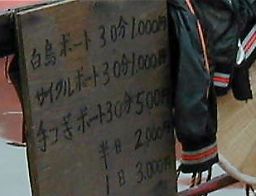 白鳥ボート 30分1.000円
サイクルボート30分1.000円
手こぎボート30分500円
半日 2,000円
1日 3,000円